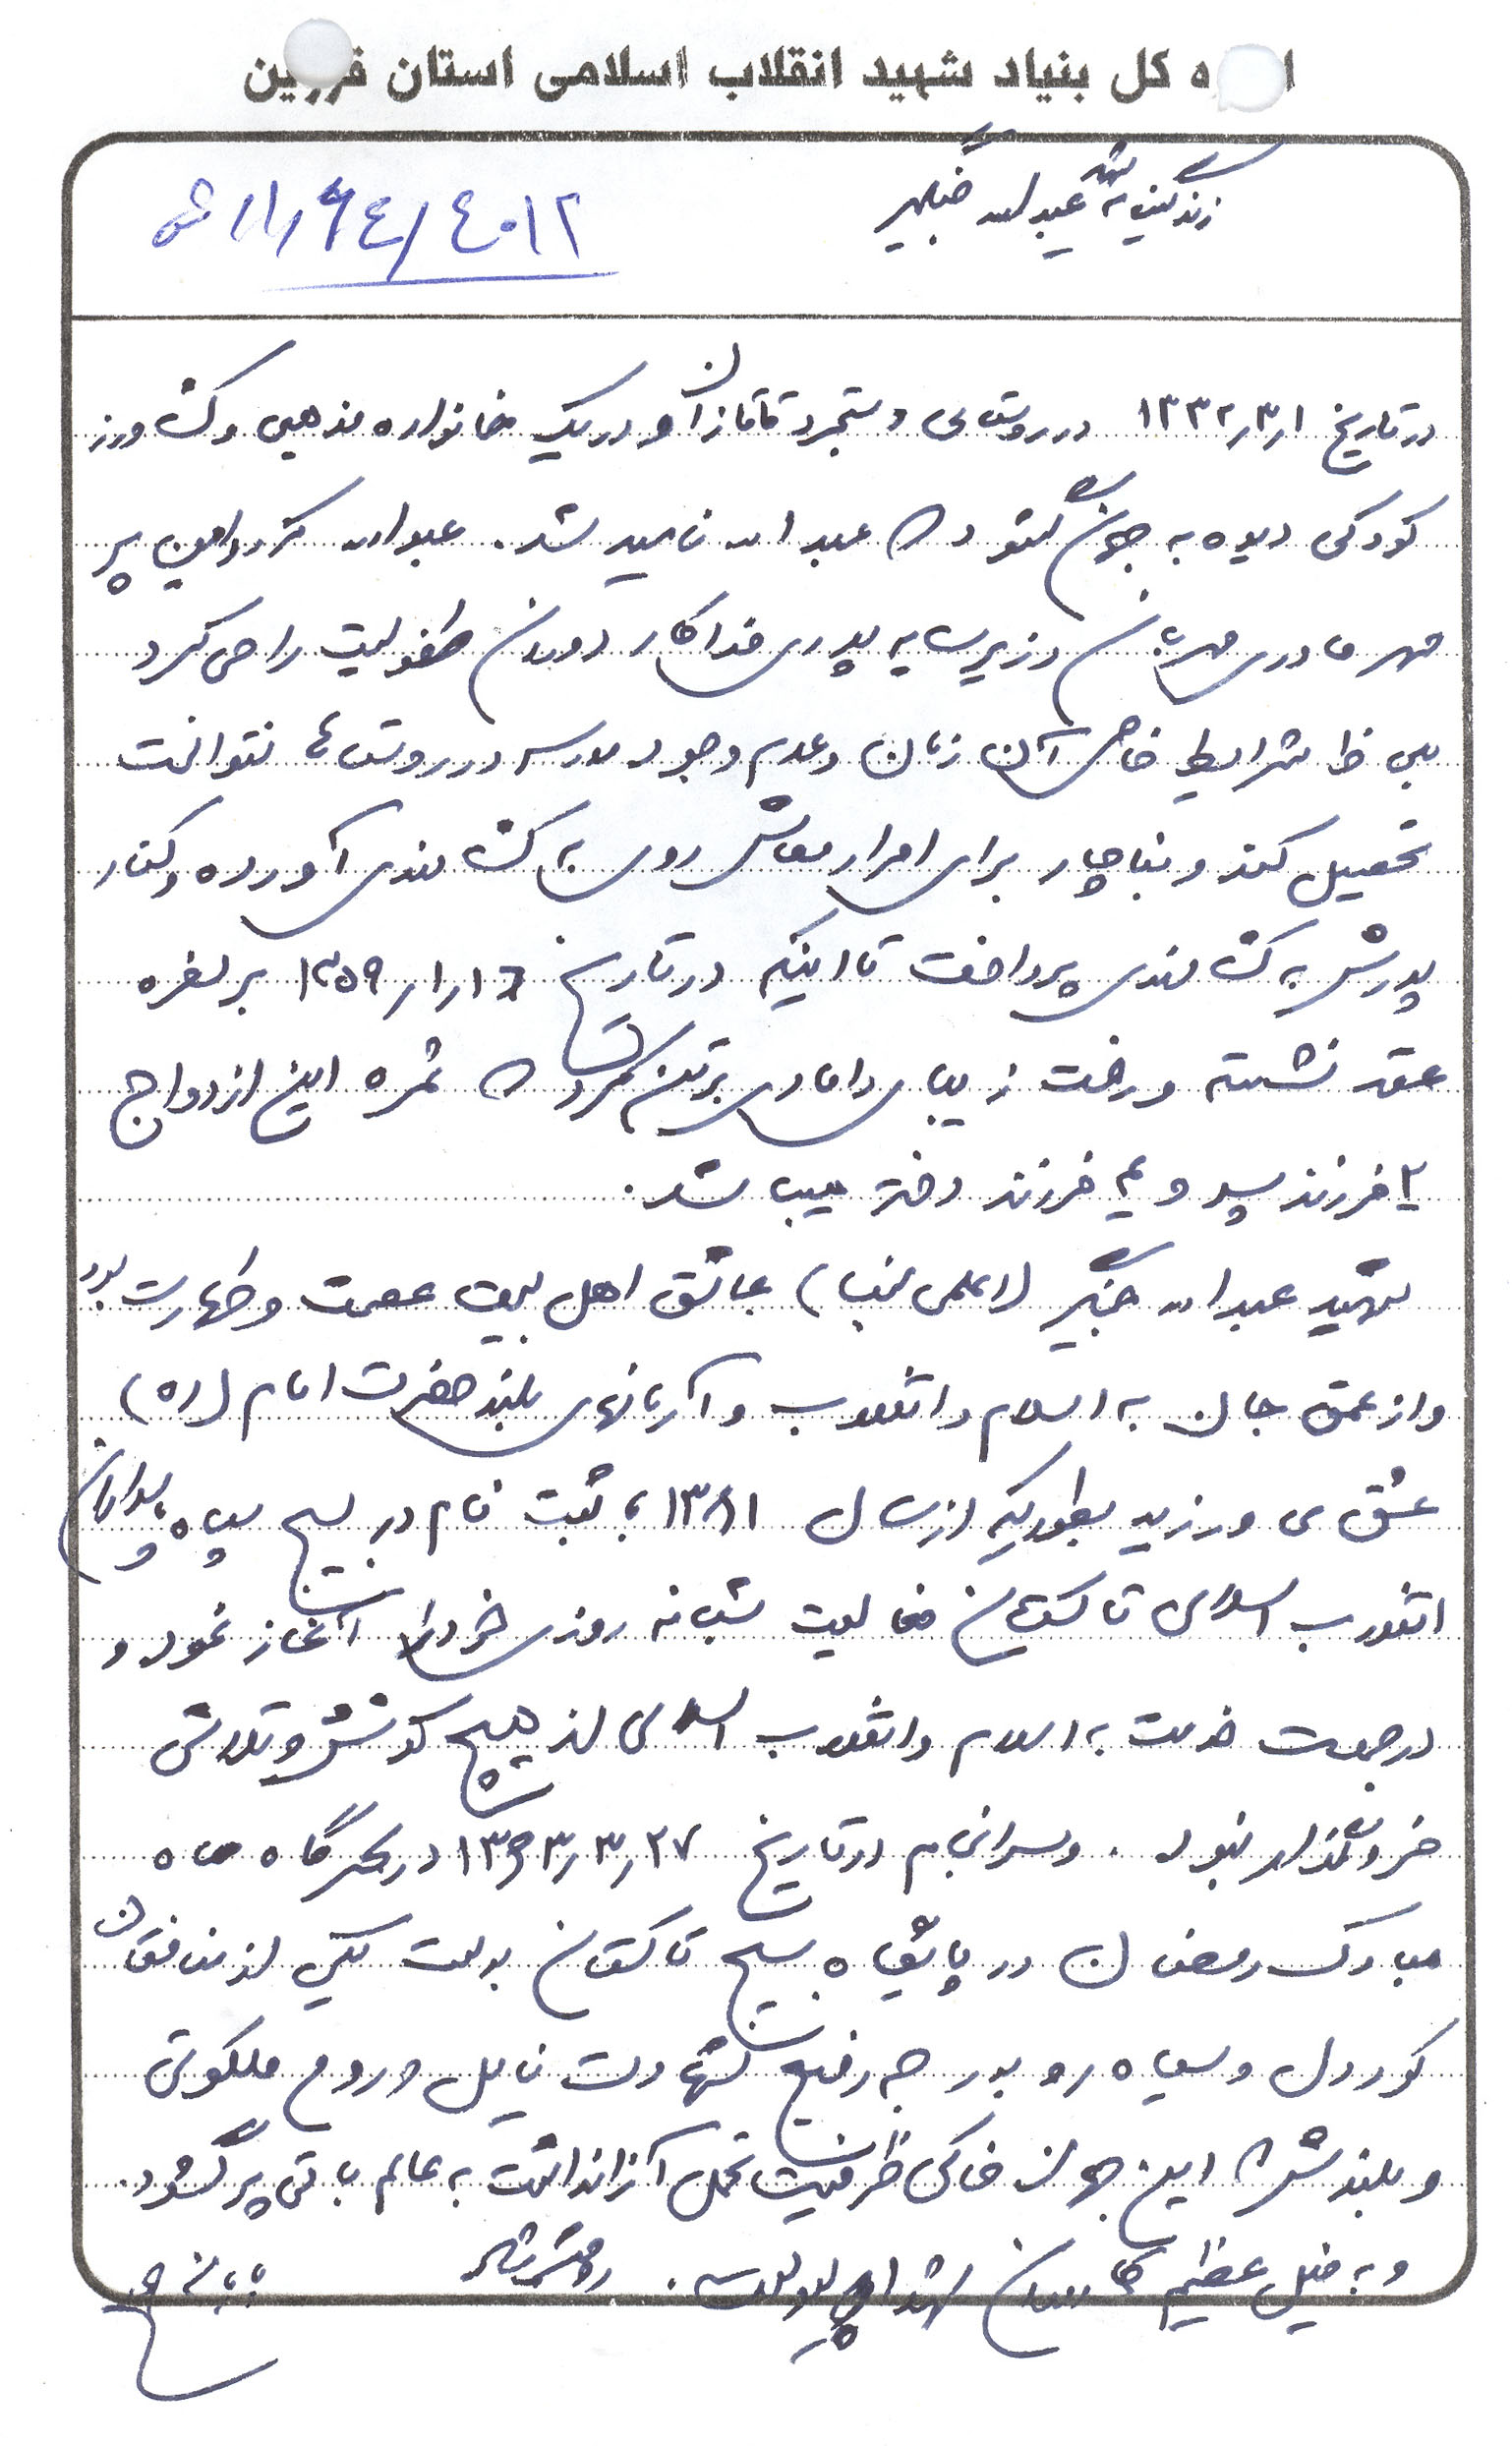 اداره کل بنیاد شهید انقلاب اسلامی استان قزوین
زندگینامه شهید عبداله
در تاریخ ۱ر۳ر۱۳۳۲ در روستای دستجرد قاقازان و در یک خانواده مذهبی و کشاورز
کودکی دیده به جهان گشود که عبداله نامیده شد. عبداله در دامن پر
مهر مادری مهربان و زیر سایه پدری فداکار دوران طفولیت را طی کرد
بی شرایط خاص آن زمان و عدم وجود مدرسه در روستاها نتوانست
تحصیل کند و بناچار برای امرار معاش روی به کشاورزی آورده و کنار
پدرش به کشاورزی پرداخت تا اینکه در تاریخ ۱۶ر۱ر۱۳۵۹ بر سفره
عقد نشسته و رخت زیبای دامادی برتن کرد که ثمره این ازدواج
۲ فرزند پسر و فرزند دختر میباشد.
شهید عبداله عاشق اهل بیت عصمت و طهارت بود
و از عمق جان به اسلام و انقلاب و آرمانهای بلند حضرت امام (ره)
عشق می ورزید بطوریکه از سال با ثبت نام در بسیج سپاه پاسداران
انقلاب اسلامی تاکستان فعالیت شبانه روزی خود را آغاز نمود و
در جهت خدمت به اسلام و انقلاب اسلامی از هیچ کوشش و تلاشی
فروگذار نبود. و سرانجام در تاریخ ۲۷ر۳ر در سحرگاه ماه
مبارک رمضان در پایگاه بسیج تاکستان بدست یکی از منافقان
کوردل و سیاه رو بدرجه رفیع شهادت نایل و روح ملکوتی
و بلندش که این جهان خاکی ظرفیت تحمل آنرا نداشت به عالم باقی پر گشود.
و به خیل عظیم کاروان شهدا پیوست. روحش شاد